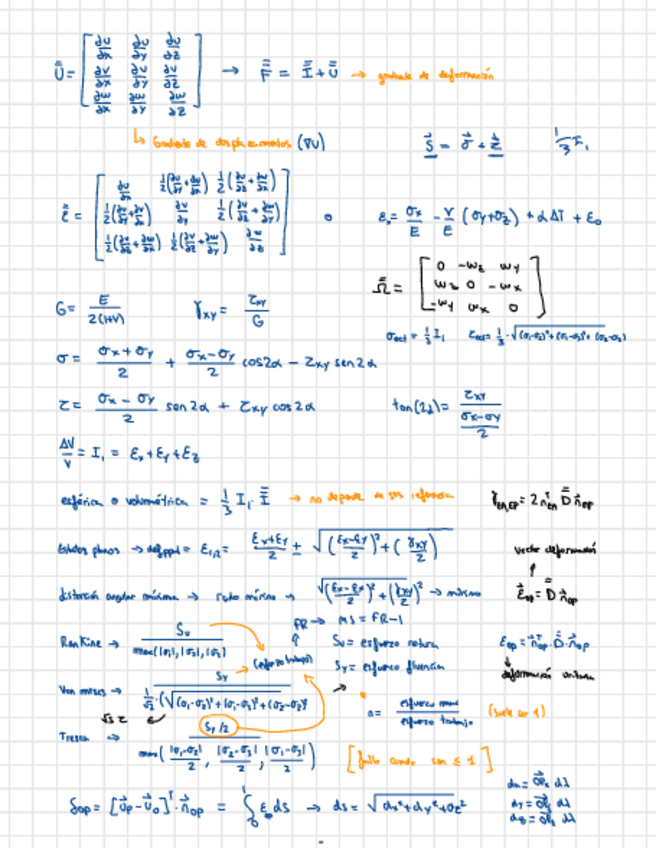 Ū̄ = [∂u/∂x ∂u/∂y ∂u/∂z; ∂v/∂x ∂v/∂y ∂v/∂z; ∂w/∂x ∂w/∂y ∂w/∂z] → F̄̄ = Ī̄ + Ū̄ → gradiente de deformación
↳ Gradiente de desplazamientos (∇U)
S⃗ = σ⃗ + τ⃗
1/3 I₁
ε̄̄ = [∂u/∂x 1/2(∂u/∂y+∂v/∂x) 1/2(∂u/∂z+∂w/∂x); 1/2(∂u/∂y+∂v/∂x) ∂v/∂y 1/2(∂v/∂z+∂w/∂y); 1/2(∂u/∂z+∂w/∂x) 1/2(∂v/∂z+∂w/∂y) ∂w/∂z]
εₓ = σx/E - ν/E (σy+σz) + αΔT + ε₀
Ω̄̄ = [0 -ωz ωy; ωz 0 -ωx; -ωy ωx 0]
G = E / 2(1+ν) γxy = τxy / G
σoct = 1/3 I₁ τoct = 1/3 · √((σ₁-σ₂)²+(σ₁-σ₃)²+(σ₂-σ₃)²)
σ = (σx+σy)/2 + (σx-σy)/2 cos2α - τxy sen2α
τ = (σx-σy)/2 sen2α + τxy cos2α
tan(2α) = τxy / ((σx-σy)/2)
ΔV/V = I₁ = εx+εy+εz
esférica o volumétrica = 1/3 I₁ · Ī̄ → no depende de sis referencia
Estados planos → def ppal = ε₁,₂ = (εx+εy)/2 ± √(((εx-εy)/2)²+(γxy/2)²)
vector deformación
↑
distorsión angular máxima → radio máximo → √(((εx-εy)/2)²+(γxy/2)²) → máximo
FR → MS = FR-1
Rankine → Su / max(|σ₁|,|σ₂|,|σ₃|)
(esfuerzo trabajo)
Su = esfuerzo rotura
Sy = esfuerzo fluencia
deformación unitaria
Von mises → Sy / (1/√2 · (√((σ₁-σ₂)²+(σ₁-σ₃)²+(σ₂-σ₃)²)))
√3 τ
n = esfuerzo max / esfuerzo trabajo (suele ser 1)
Tresca → Sy/2 / max(|σ₁-σ₂|/2, |σ₂-σ₃|/2, |σ₁-σ₃|/2)
[fallo cuando son ≤ 1]
δop = [u⃗p-u⃗o]ᵀ·n⃗op = ∫₀¹ ε ds → ds = √(dx²+dy²+dz²)